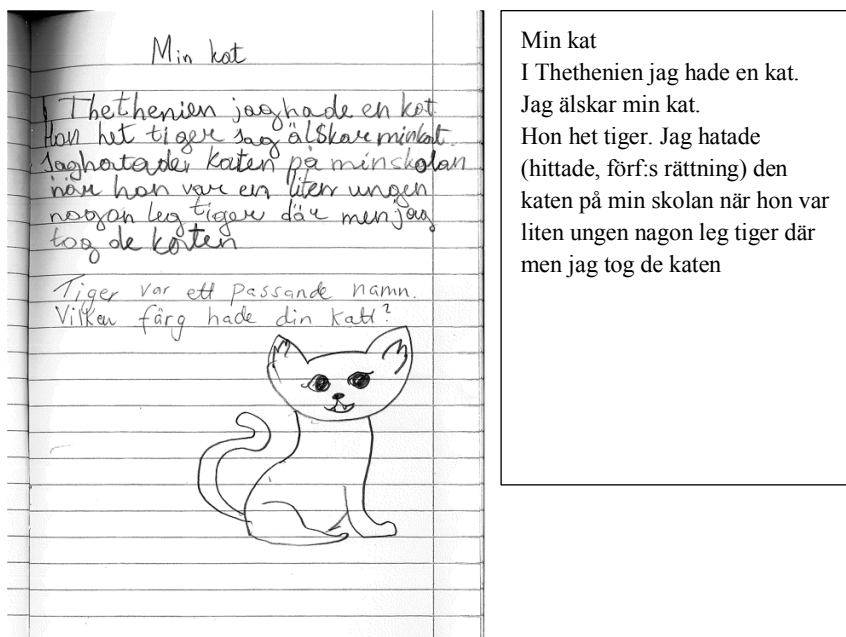 Min kat
I Thethenien jag hade en kat
Hon het tiger Jag älskar min kat.
Jag hatade katen på min skolan
när hon var en liten ungen
nogon leg tiger där men jag
tog de katen
Tiger var ett passande namn.
Vilken färg hade din katt?
Min kat
I Thethenien jag hade en kat.
Jag älskar min kat.
Hon het tiger. Jag hatade
(hittade, förf:s rättning) den
katen på min skolan när hon var
liten ungen nagon leg tiger där
men jag tog de katen